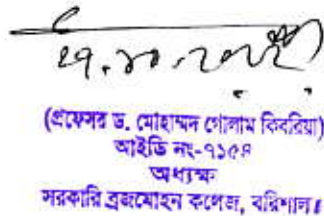 (প্রফেসর ড. মোহাম্মদ গোলাম কিবরিয়া)
আইডি নং-৭১৫৪
অধ্যক্ষ
সরকারি ব্রজমোহন কলেজ, বরিশাল।